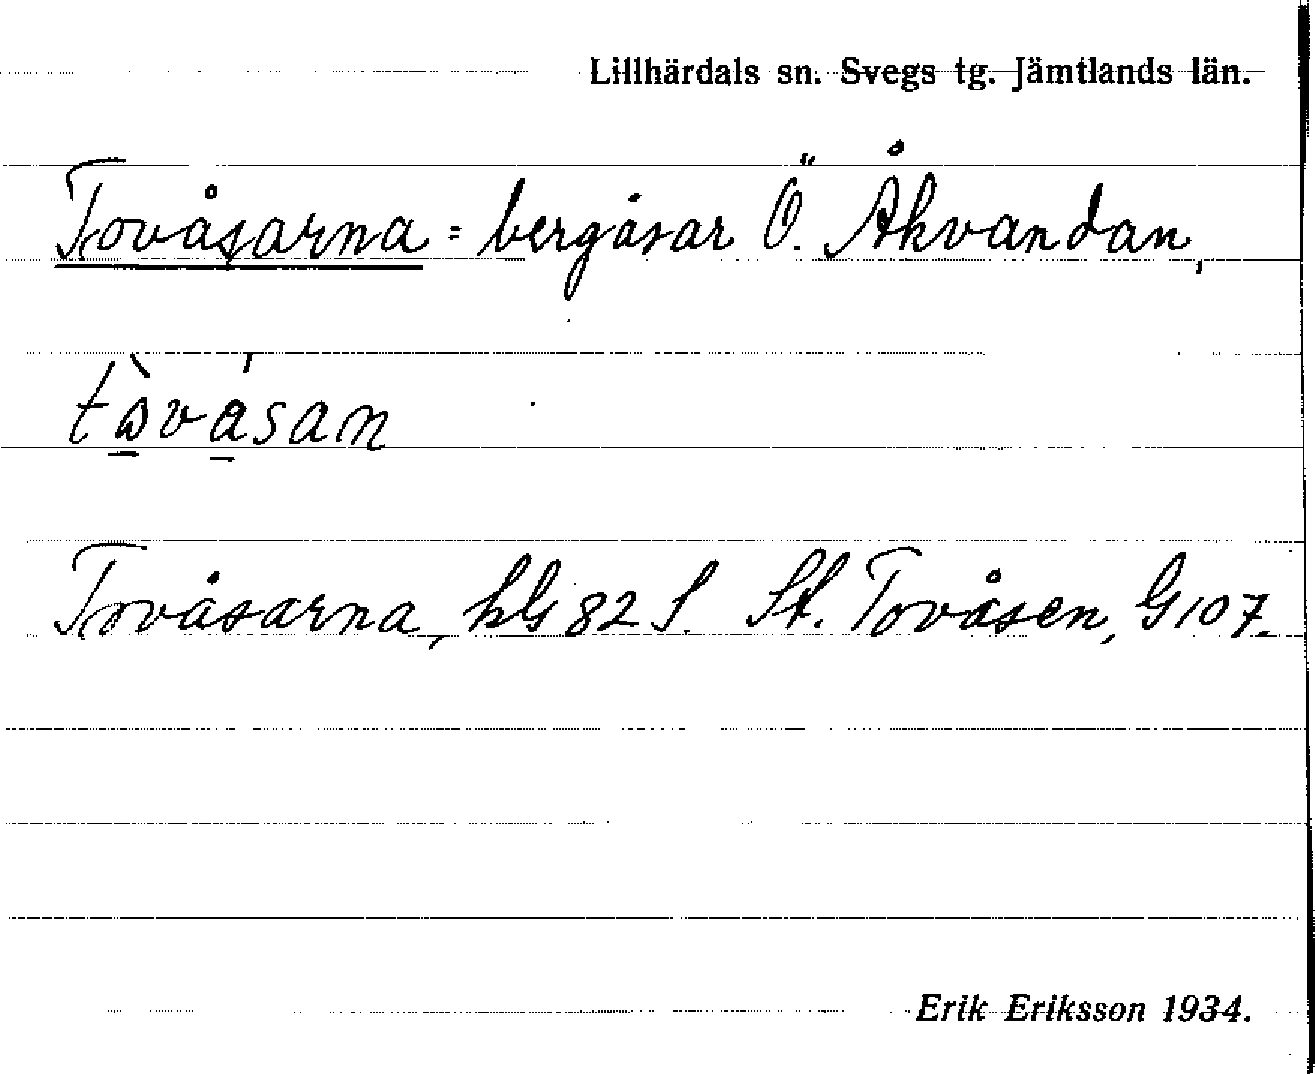 Lillhärdals sn. Svegs tg. Jämtlands län.
Tovåsarna = bergåsar Ö. Åkvandan,
Tovåsarna, hG 82 S. St. Tovåsen, G 107.
Erik Eriksson 1934.